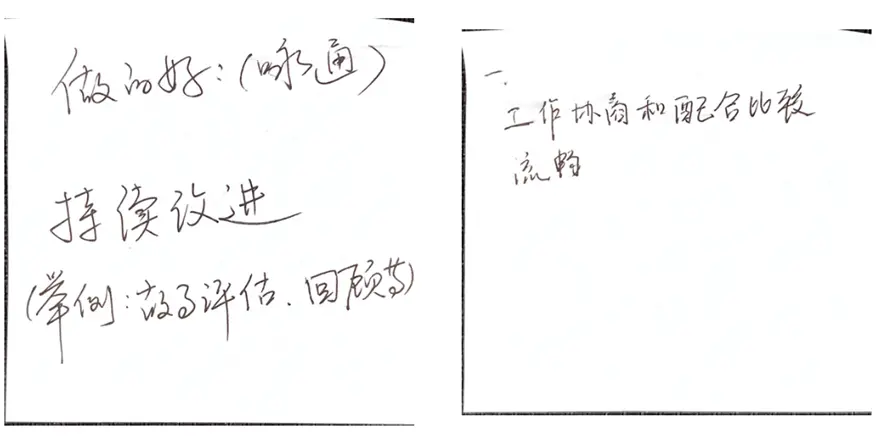 做的好：(咏通)
持续改进
(举例：故事评估、回顾等)
一.
工作协商和配合比较
流畅